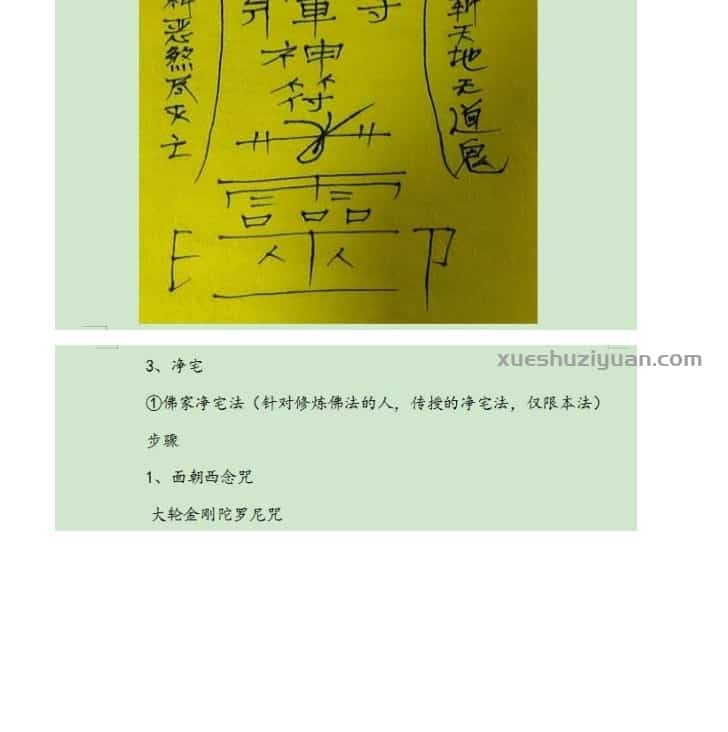 斩天地无道鬼
神符
恶煞尽灭亡
xueshuziyuan.com
3、净宅
①佛家净宅法（针对修炼佛法的人，传授的净宅法，仅限本法）
步骤
1、面朝西念咒
大轮金刚陀罗尼咒